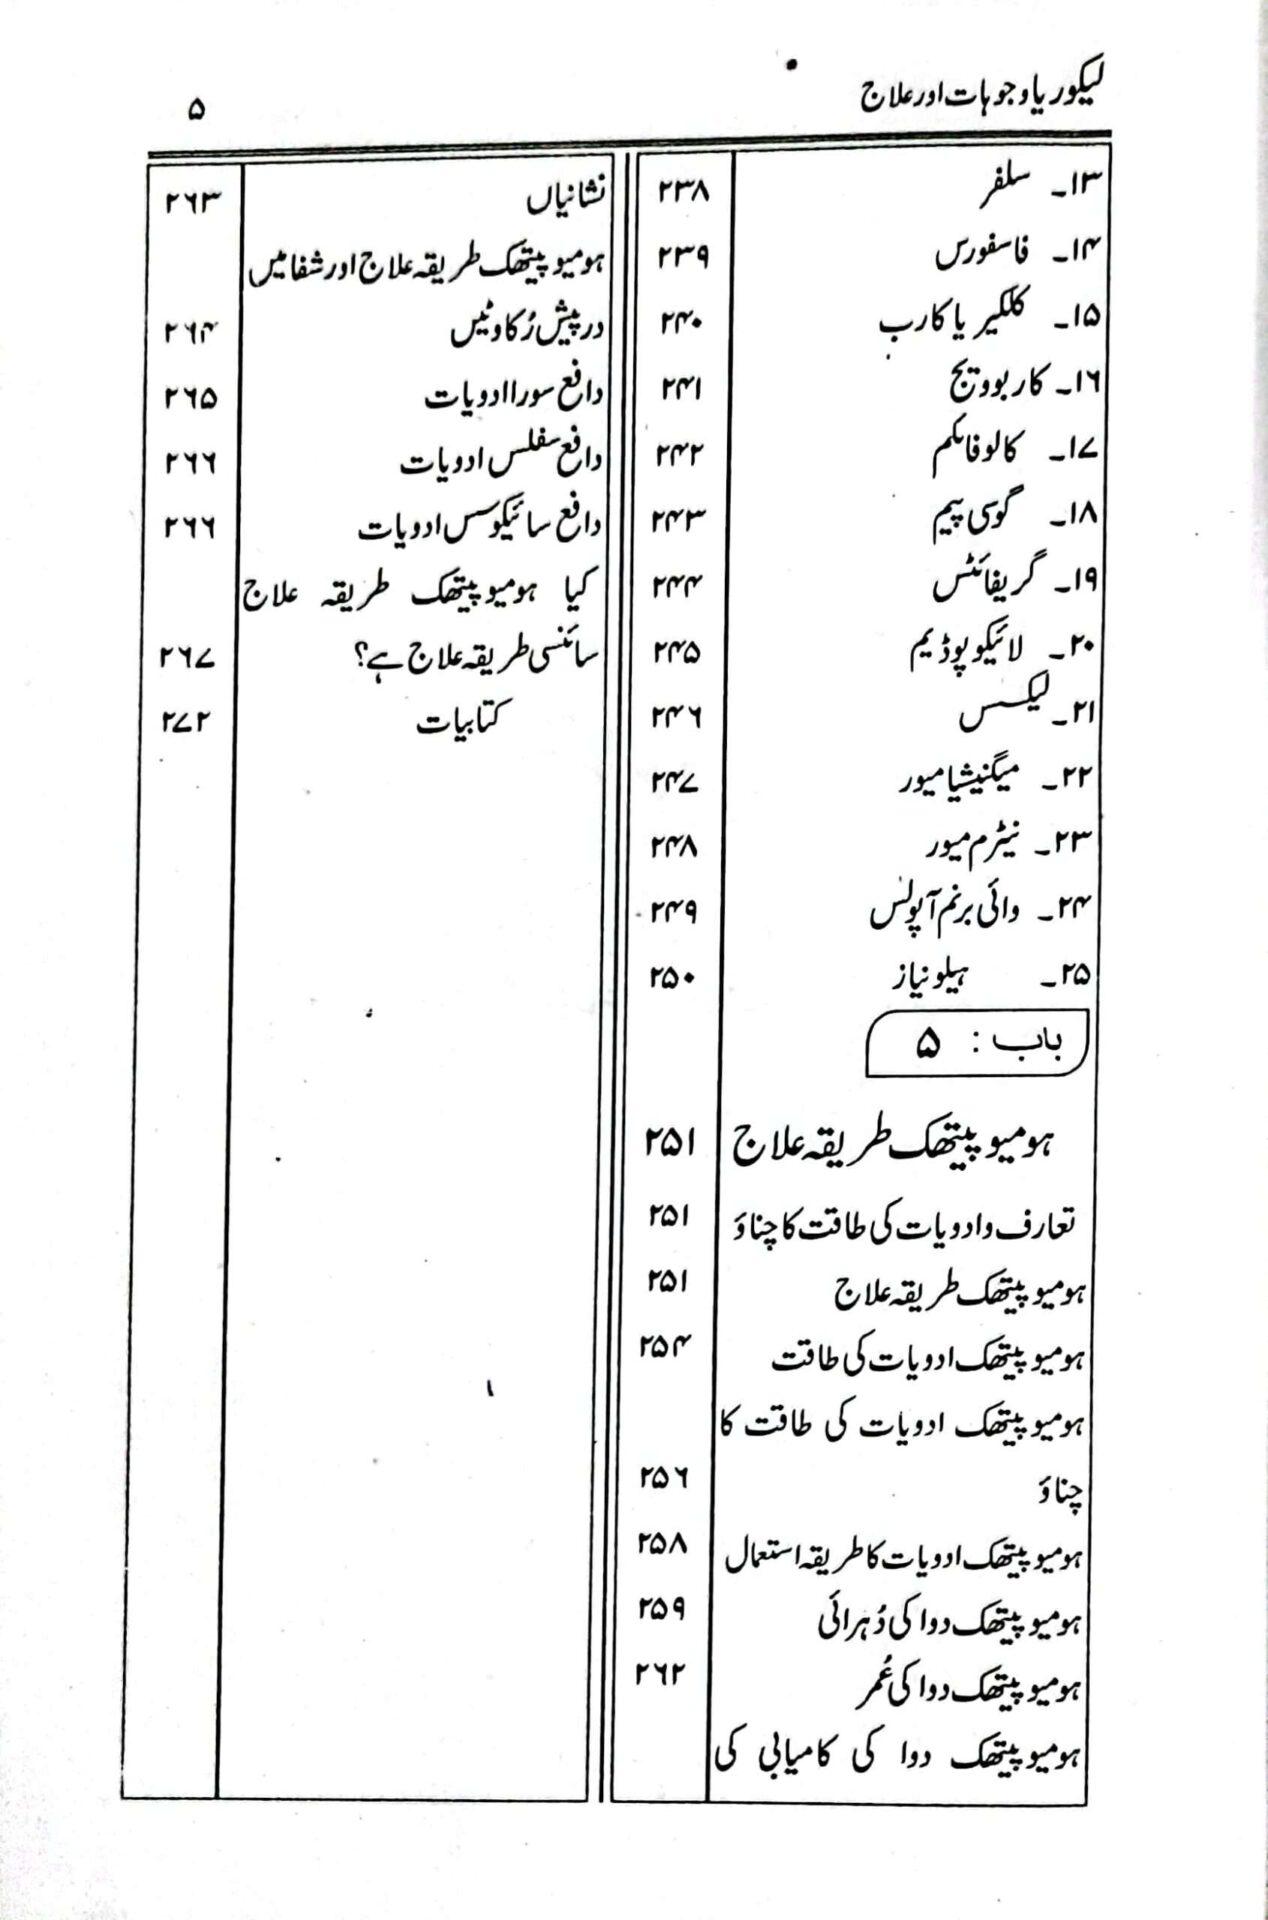 لیکوریا وجوہات اور علاج ۵
۱۳۔ سلفر ۲۳۸
۱۴۔ فاسفورس ۲۳۹
۱۵۔ کلکیریا کارب ۲۴۰
۱۶۔ کاربوویج ۲۴۱
۱۷۔ کالوفائلم ۲۴۲
۱۸۔ گوسی پیم ۲۴۳
۱۹۔ گریفائٹس ۲۴۴
۲۰۔ لائیکوپوڈیم ۲۴۵
۲۱۔ لیکسس ۲۴۶
۲۲۔ میگنیشیا میور ۲۴۷
۲۳۔ نیٹرم میور ۲۴۸
۲۴۔ وائی برنم آپولس ۲۴۹
۲۵۔ ہیلونیاز ۲۵۰
باب : ۵
ہومیوپیتھک طریقہ علاج ۲۵۱
تعارف و ادویات کی طاقت کا چناؤ ۲۵۱
ہومیوپیتھک طریقہ علاج ۲۵۱
ہومیوپیتھک ادویات کی طاقت ۲۵۴
ہومیوپیتھک ادویات کی طاقت کا
چناؤ ۲۵۶
ہومیوپیتھک ادویات کا طریقہ استعمال ۲۵۸
ہومیوپیتھک دوا کی دُہرائی ۲۵۹
ہومیوپیتھک دوا کی عُمر ۲۶۲
ہومیوپیتھک دوا کی کامیابی کی
نشانیاں ۲۶۳
ہومیوپیتھک طریقہ علاج اور شفا میں
درپیش رُکاوٹیں ۲۶۴
دافع سورا ادویات ۲۶۵
دافع سفلس ادویات ۲۶۶
دافع سائیکوسس ادویات ۲۶۶
کیا ہومیوپیتھک طریقہ علاج
سائنسی طریقہ علاج ہے؟ ۲۶۷
کتابیات ۲۷۲